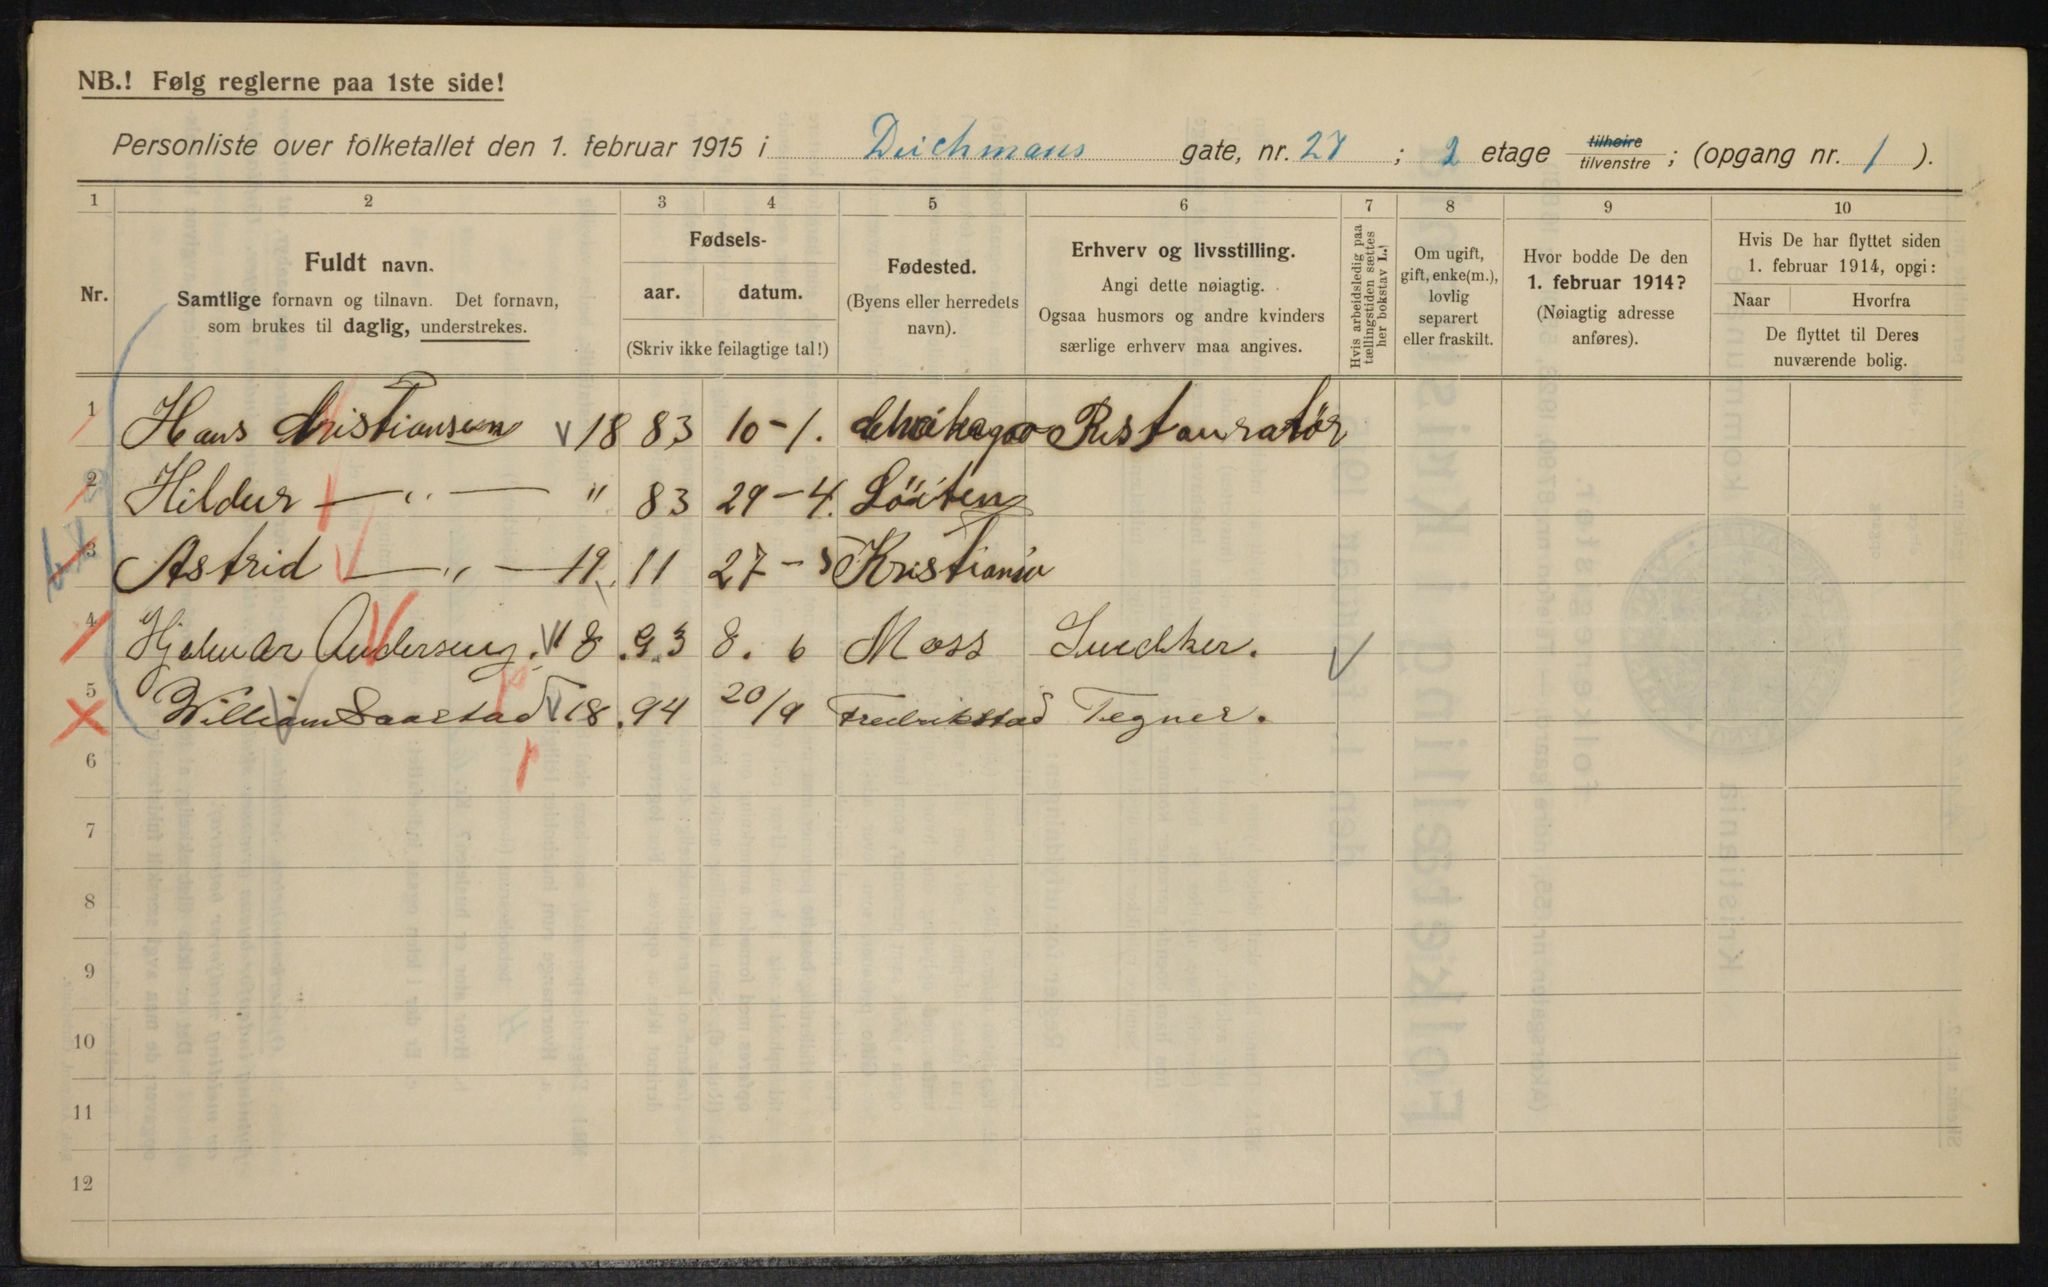 NB.! Følg reglerne paa 1ste side!
Personliste over folketallet den 1. februar 1915 i Deichmans gate, nr. 27 ; 2 etage tilhøire tilvenstre ; (opgang nr. 1 ).
1 2 3 4 5 6 7 8 9 10
Nr.
Fuldt navn.
Samtlige fornavn og tilnavn. Det fornavn,
som brukes til daglig, understrekes.
Fødsels-
aar. datum.
(Skriv ikke feilagtige tal!)
Fødested.
(Byens eller herredets
navn).
Erhverv og livsstilling.
Angi dette nøiagtig.
Ogsaa husmors og andre kvinders
særlige erhverv maa angives.
Hvis arbeidsledig paa
tællingstiden sættes
her bokstav L.!
Om ugift,
gift, enke(m.),
lovlig
separert
eller fraskilt.
Hvor bodde De den
1. februar 1914?
(Nøiagtig adresse
anføres).
Hvis De har flyttet siden
1. februar 1914, opgi:
Naar Hvorfra
De flyttet til Deres
nuværende bolig.
1 Hans Kristiansen 18 83 10-1. Restauratør
2 Hildur —„— " 83 29-4. Löiten
3 Astrid —„— 19 11 27- Kristiania
4 Hjalmar 18.93 8. 6 Moss
5 William Saastad 18.94 20/9 Fredrikstad Tegner.
6
7
8
9
10
11
12